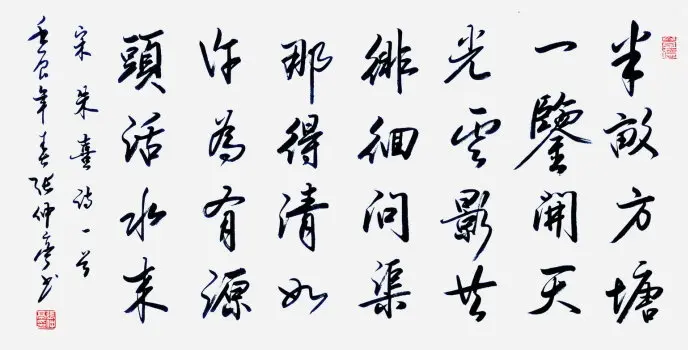 半畝方塘
一鑒開天
光雲影共
徘徊問渠
那得清如
許為有源
頭活水来
宋朱熹詩一首
壬辰年春張仲亭書